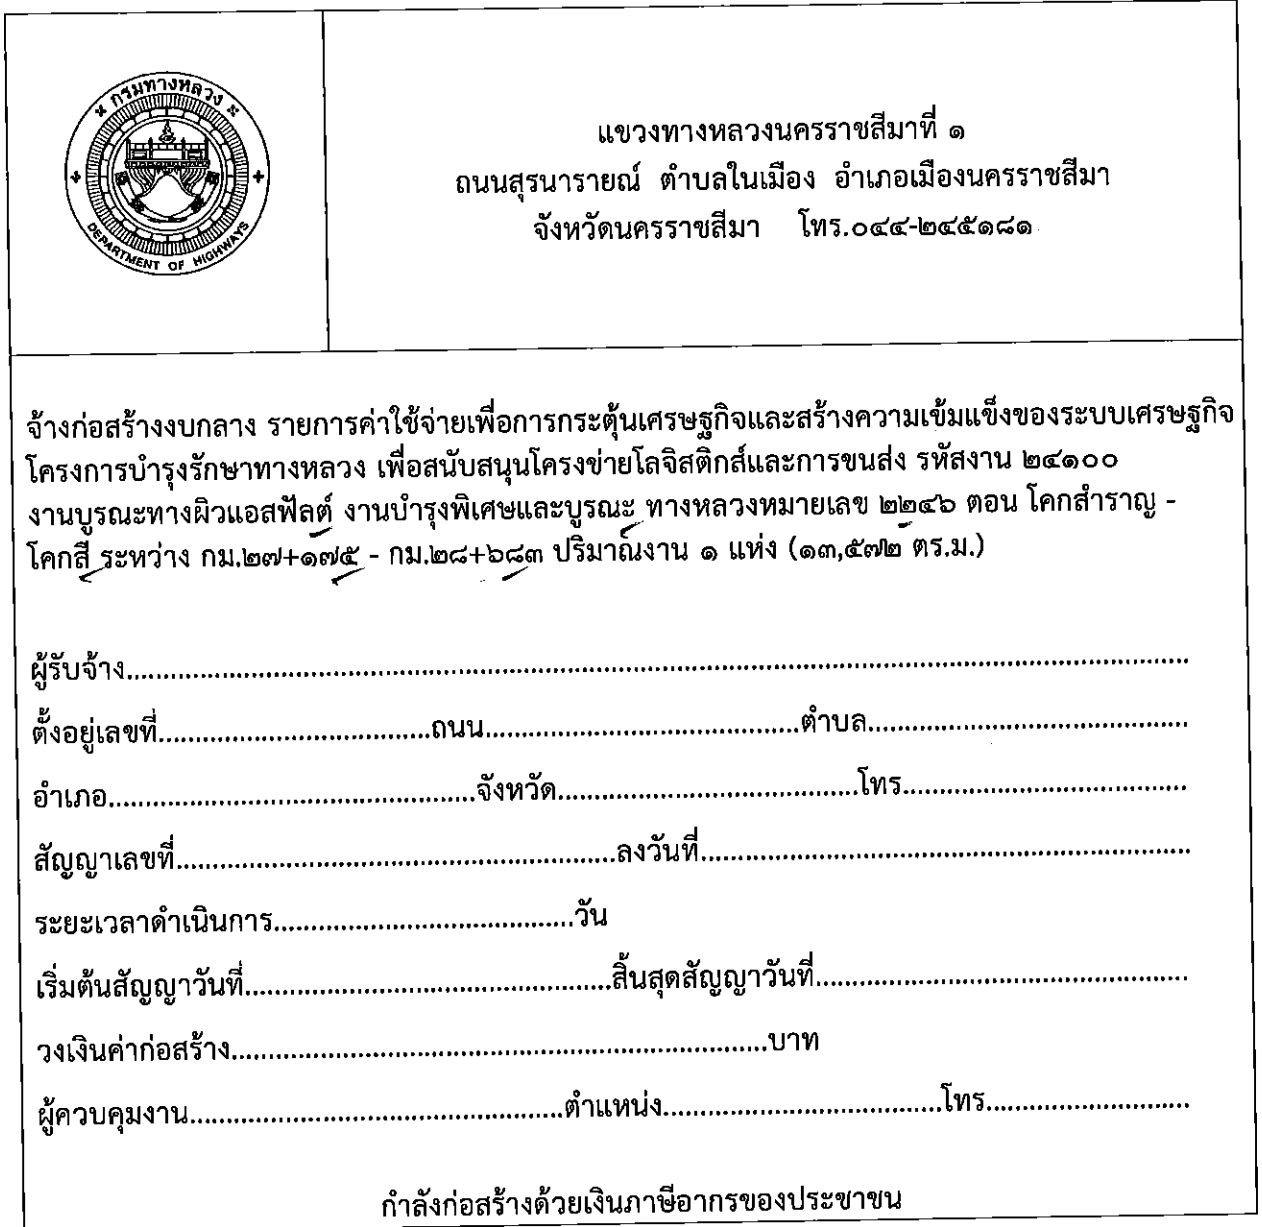 กรมทางหลวง
DEPARTMENT OF HIGHWAYS
แขวงทางหลวงนครราชสีมาที่ ๑
ถนนสุรนารายณ์ ตำบลในเมือง อำเภอเมืองนครราชสีมา
จังหวัดนครราชสีมา โทร.๐๔๔-๒๔๕๑๘๑
จ้างก่อสร้างงบกลาง รายการค่าใช้จ่ายเพื่อการกระตุ้นเศรษฐกิจและสร้างความเข้มแข็งของระบบเศรษฐกิจ
โครงการบำรุงรักษาทางหลวง เพื่อสนับสนุนโครงข่ายโลจิสติกส์และการขนส่ง รหัสงาน ๒๔๑๐๐
งานบูรณะทางผิวแอสฟัลต์ งานบำรุงพิเศษและบูรณะ ทางหลวงหมายเลข ๒๒๔๖ ตอน โคกสำราญ -
โคกสี ระหว่าง กม.๒๗+๑๗๕ - กม.๒๘+๖๘๓ ปริมาณงาน ๑ แห่ง (๑๓,๕๗๒ ตร.ม.)
ผู้รับจ้าง........................................................................................................
ตั้งอยู่เลขที่....................................ถนน..........................................ตำบล..........................................
อำเภอ.................................................จังหวัด........................................โทร......................................
สัญญาเลขที่...........................................................ลงวันที่.................................................................
ระยะเวลาดำเนินการ........................................วัน
เริ่มต้นสัญญาวันที่.................................................สิ้นสุดสัญญาวันที่.................................................
วงเงินค่าก่อสร้าง........................................................................บาท
ผู้ควบคุมงาน..................................................ตำแหน่ง.....................................โทร...........................
กำลังก่อสร้างด้วยเงินภาษีอากรของประชาชน